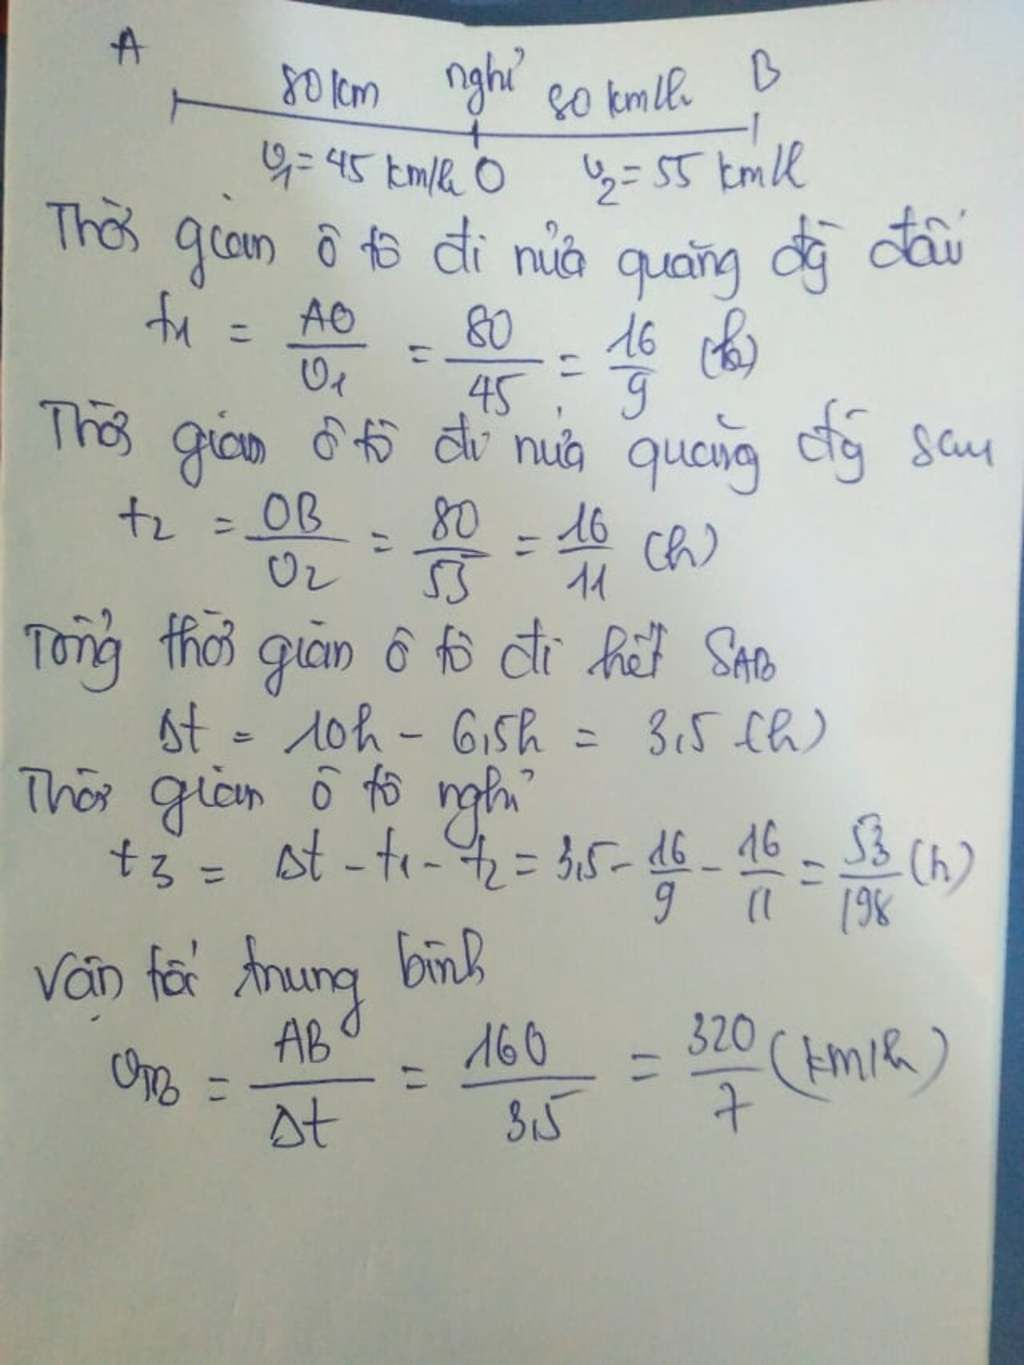 A
80 km nghỉ 80 km/h B
v₁ = 45 km/h O v₂ = 55 km/h
Thời gian ô tô đi nửa quãng đg̀ đầu
t₁ = AO/v₁ = 80/45 = 16/9 (h)
Thời gian ô tô đi nửa quãng đg̀ sau
t₂ = OB/v₂ = 80/55 = 16/11 (h)
Tổng thời gian ô tô đi hết S_AB
Δt = 10h - 6,5h = 3,5 (h)
Thời gian ô tô nghỉ
t₃ = Δt - t₁ - t₂ = 3,5 - 16/9 - 16/11 = 53/198 (h)
Vận tốc trung bình
v_TB = AB/Δt = 160/3,5 = 320/7 (km/h)